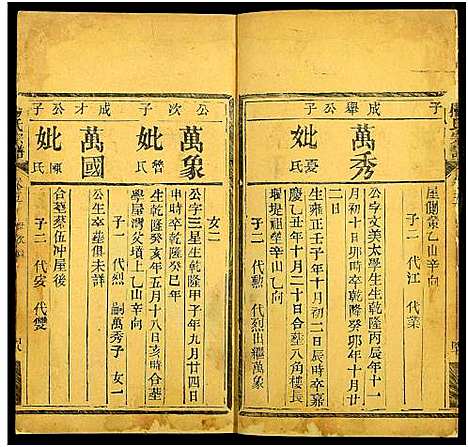 子
屋側葬乙山辛向
子二 代江 代業
成舉公子
萬秀
公字文美太學生生乾隆丙辰年十一
月初十日卯時卒乾隆癸卯年十月十
二日
妣夏氏
生雍正壬子年十月初二日辰時卒嘉
慶乙丑年十月二十日合葬八角樓長
堰堤祖塋辛山乙向
子二 代勳 代烈出繼萬象
公次子
女二
萬象
公字三星生乾隆甲子年九月廿四日
申時卒乾隆癸巳年
妣曾氏
生乾隆癸亥年五月十八日亥時合葬
學屋灣父墳上乙山辛向
子一 代烈 嗣萬秀子 女一
成才公子
萬國
公生卒葬俱未詳
妣陳氏
合葬蔡伍冲屋後
子二 代安 代雙